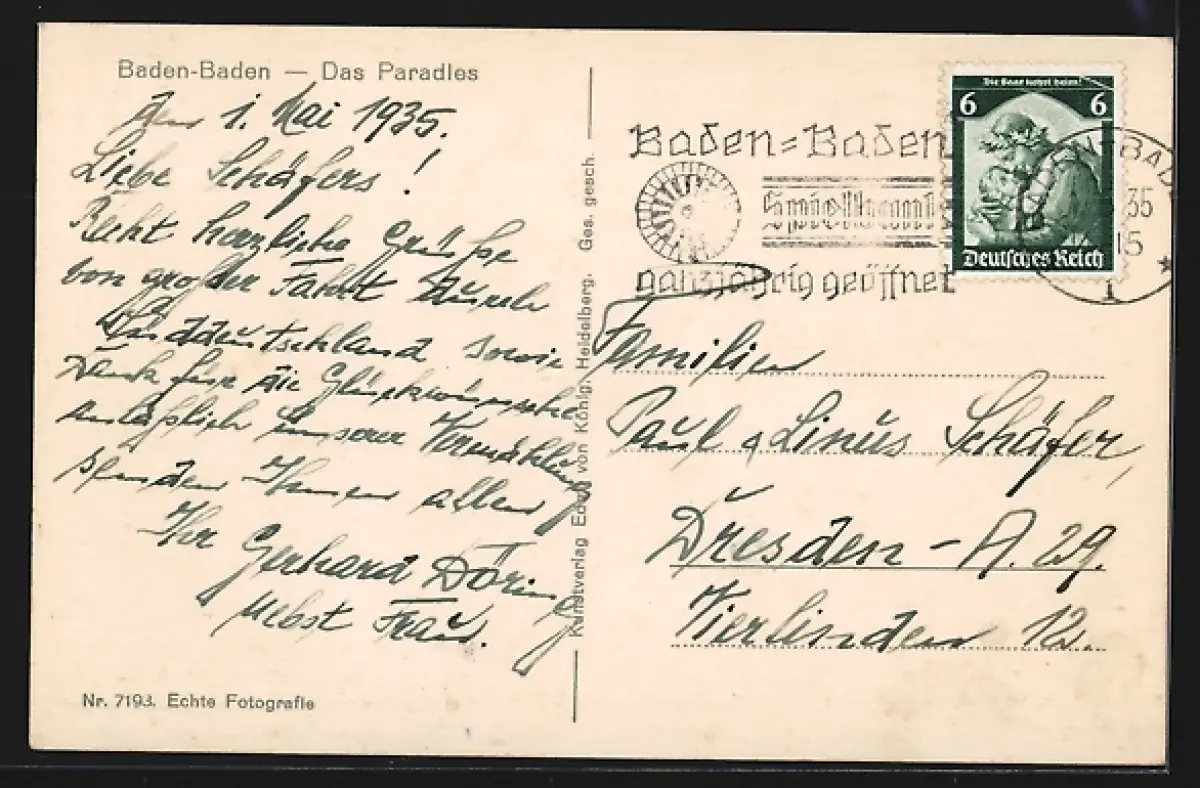 Baden-Baden — Das Paradies
den 1. Mai 1935.
Liebe Schäfers!
Recht herzliche Grüße
von großer Fahrt durch
Süddeutschland sowie
Dank für die Glückwünsche
anläßlich unserer Vermählung
senden Ihnen allen
Ihr Gerhard Döring
nebst Frau.
Nr. 7193. Echte Fotografie
Kunstverlag Edgar von König, Heidelberg. Ges. gesch.
Baden=Baden
Spielbank
ganzjährig geöffnet
Die Saar kehrt heim!
6 6
Deutsches Reich
BADEN-BAD
35
15
1
Familien
Paul & Linus Schäfer,
Dresden-A. 29.
Vierlinden 12.